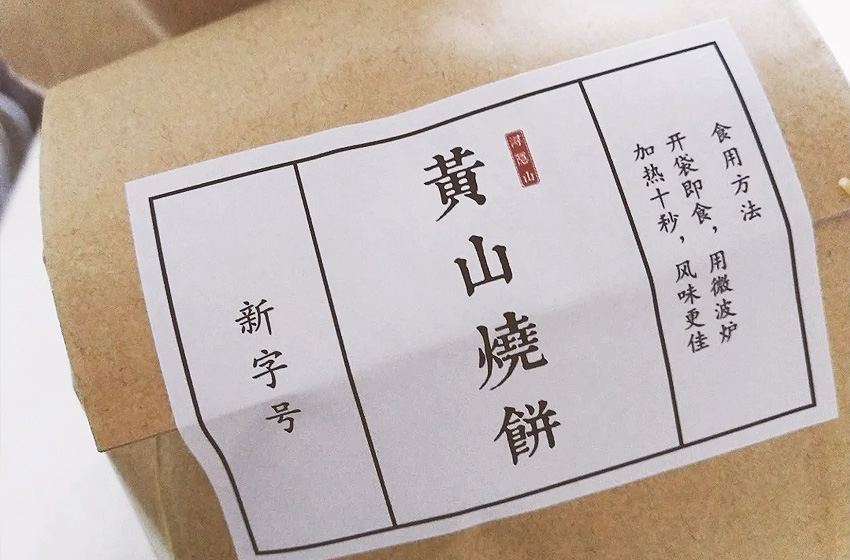 食用方法
开袋即食，用微波炉
加热十秒，风味更佳
寻隐山
黄山燒餅
新字号